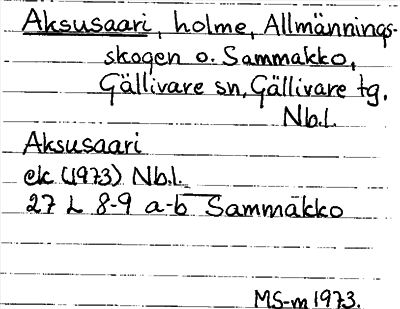 Aksusaari, holme, Allmännings-
skogen o. Sammakko,
Gällivare sn, Gällivare tg.
Nb.l.
Aksusaari
ek (1973) Nb.l.
27 L 8-9 a-b Sammakko
MS-m 1973.